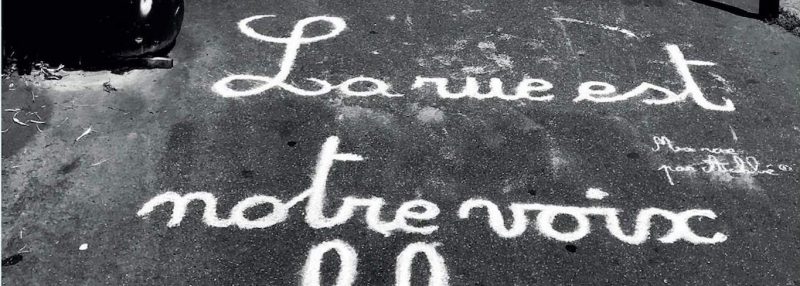 La rue est
notre voix
par